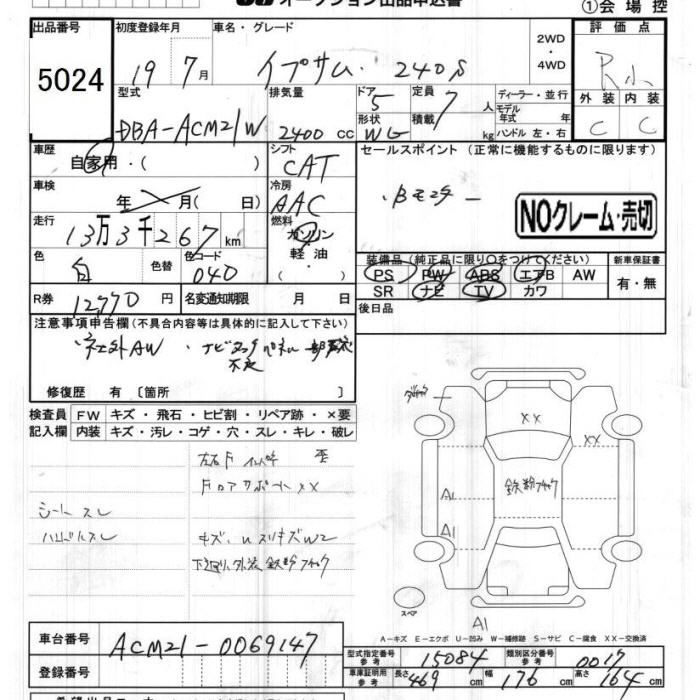 オークション出品申込書
①会場控
出品番号 初度登録年月 車名・グレード 評価点
5024
19年7月 イプサム 240s 2WD・4WD R
型式 排気量 ドア 5 定員 7人 ディーラー・並行 外装 内装
DBA-ACM21W 2400cc 形状 WG 積載 kg モデル年式 年 ハンドル 左・右 C C
車歴 シフト セールスポイント(正常に機能するものに限ります)
自家用・( ) CAT
車検 冷房
年 月( 日) AAC
NOクレーム・売切
走行 燃料
13万3千267km ガソリン・軽油・
色 色替 色コード 装備品(純正品に限り○をつけてください) 新車保証書
白 040 PS PW ABS エアB AW 有・無
R券 12,770円 名変通知期限 月 日 SR ナビ TV カワ
注意事項申告欄(不具合内容等は具体的に記入して下さい) 後日品
社外AW
修復歴 有〔箇所 〕
検査員 FW キズ・飛石・ヒビ割・リペア跡・×要
記入欄 内装 キズ・汚レ・コゲ・穴・スレ・キレ・破レ
XX
XX
左右F インパネ 歪
鉄粉
A1
シートスレ
A1
ハンドルスレ
下廻り、外装 鉄粉
スペア
A1
A-キズ E-エクボ U-凹み W-補修跡 S-サビ C-腐食 XX-交換済
車台番号 ACM21-0069147
型式指定番号 参考 15084 類別区分番号 参考 0017
登録番号
車庫証明用 参考 長さ 469cm 幅 176cm 高さ 164cm